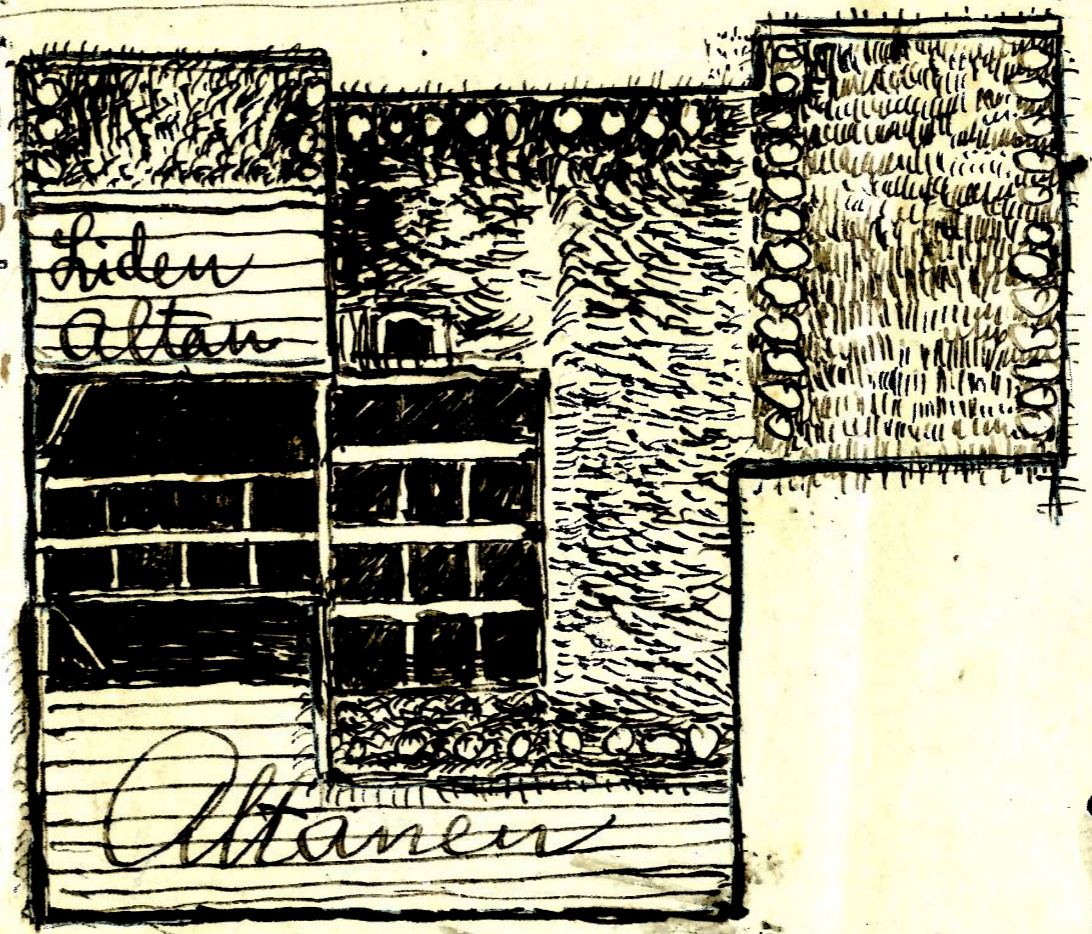 Liden
Altan
Altanen